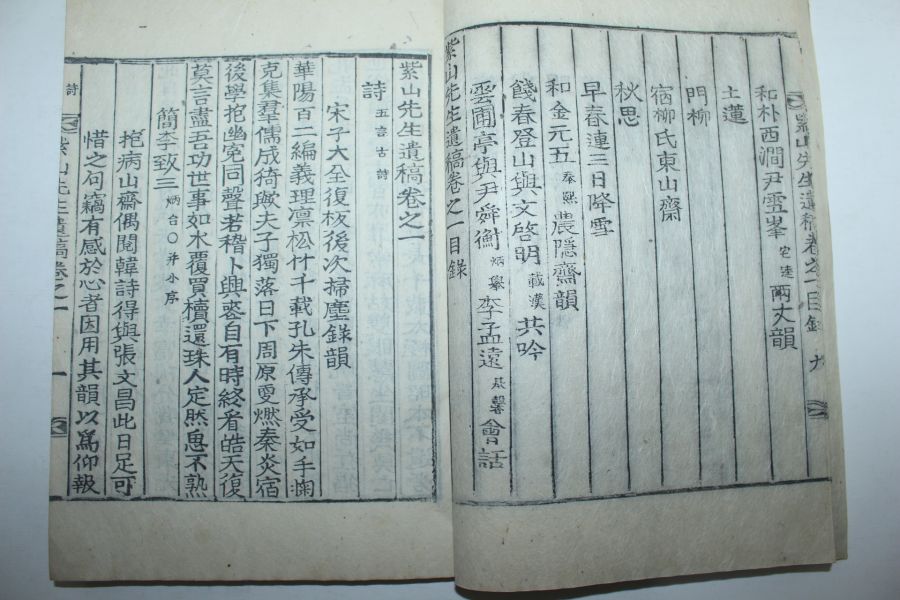 紫山先生遺稿卷之一目錄 九
和朴西澗尹雪峯 兩丈韻
土蓮
門柳
宿柳氏東山齋
秋思
早春連三日降雪
和金元五 奉熙 農隱齋韻
餞春登山與文啓明 載漢 共吟
雲圃亭與尹舜衡 炳 李孟遠 馨 會話
紫山先生遺稿卷之一目錄
紫山先生遺稿卷之一
詩 五言古詩
宋子大全復校後次掃塵錄韻
華陽百二編義理凛松竹千載孔朱傳承受如手掬
克集羣儒成猗歟夫子獨落日下周原更燃秦炎宿
後學抱幽寃同聲若稽卜與喪自有時終看皓天復
莫言盡吾功世事如水覆買櫝還珠人定然思不熟
簡李致三 炳台〇幷小序
抱病山齋偶閱韓詩得與張文昌此日足可
惜之句竊有感於心者因用其韻以爲仰報
詩 紫山先生遺稿卷之一 一